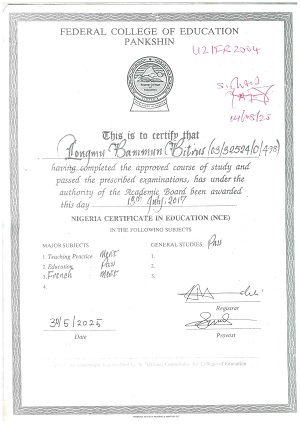 FEDERAL COLLEGE OF EDUCATION
PANKSHIN
This is to certify that
having completed the approved course of study and
passed the prescribed examinations, has under the
authority of the Academic Board been awarded
this day 13th July, 2017
NIGERIA CERTIFICATE IN EDUCATION (NCE)
IN THE FOLLOWING SUBJECTS
MAJOR SUBJECTS
GENERAL STUDIES Pass
1. Teaching Practice Merit
2. Education Pass
3. French Merit
4.
1.
2.
3.
Registrar
30/5/2025
Date
Provost